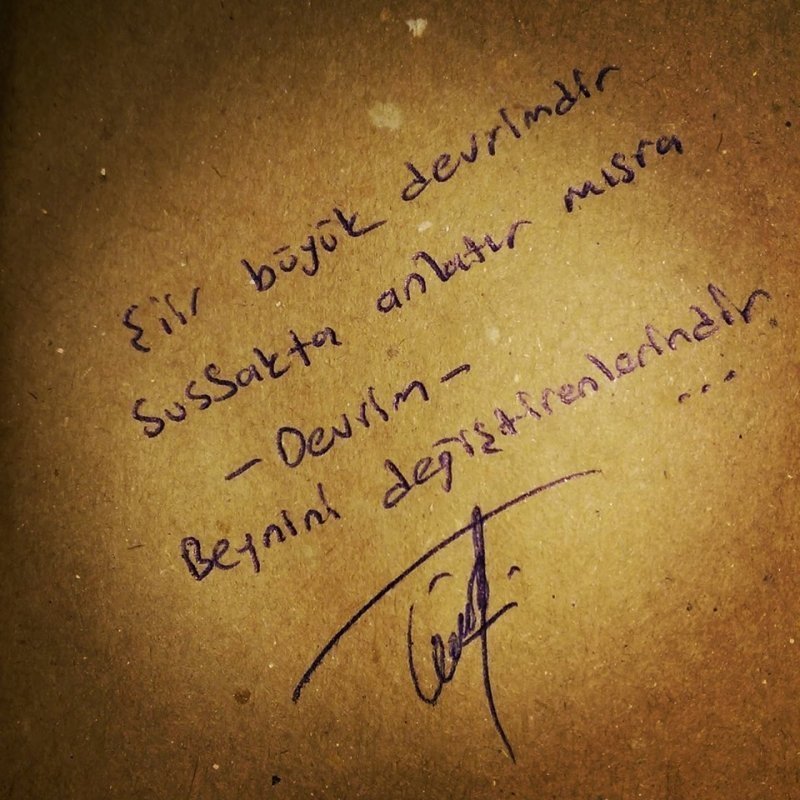 Şiir büyük devrimdir
Sussakta anlatır mısra
- Devrim -
Beynini değiştirenlerindir
...